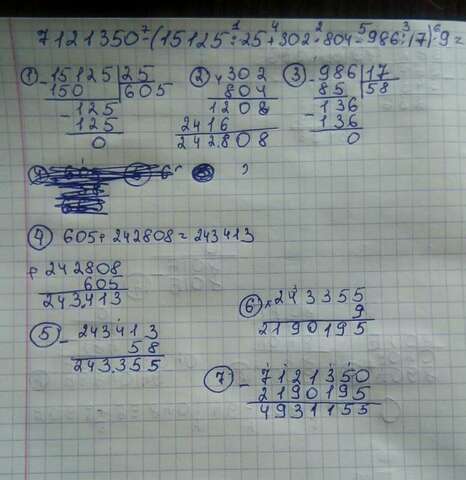 7121350-(15125:25+302·804-986:17)·9=
① 15125 | 25
150 | 605
- 125
125
0
② × 302
804
1208
2416
242808
③ - 986 | 17
85 | 58
- 136
136
0
④ 605+242808=243413
+ 242808
605
243413
⑤ - 243413
58
243355
⑥ × 243355
9
2190195
⑦ - 7121350
2190195
4931155